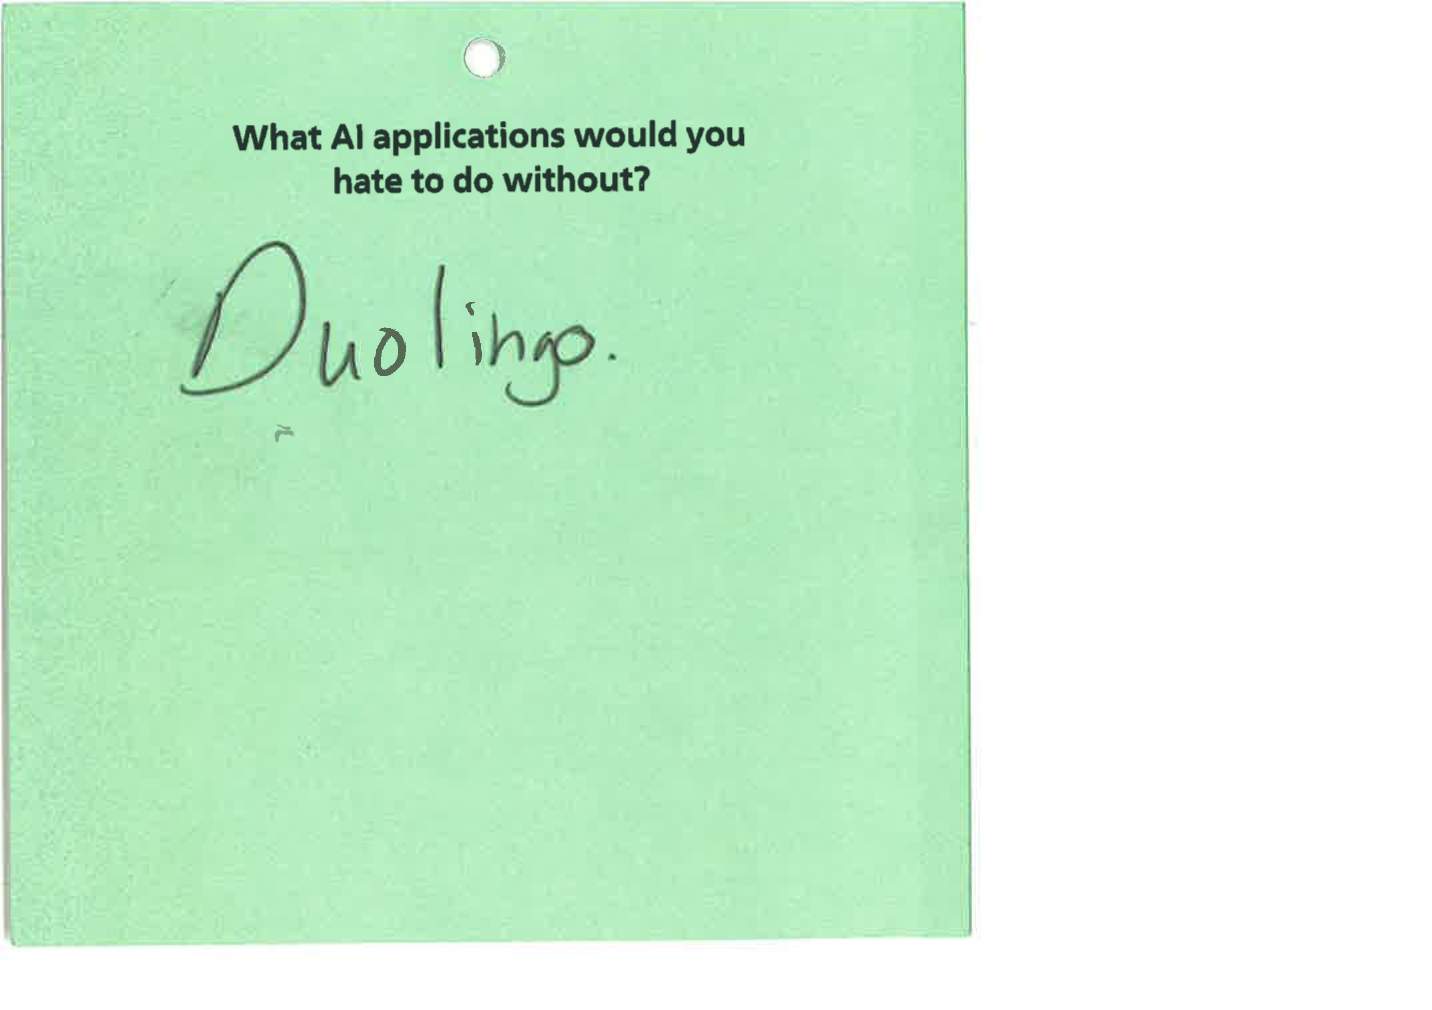 What AI applications would you
hate to do without?
Duolingo.